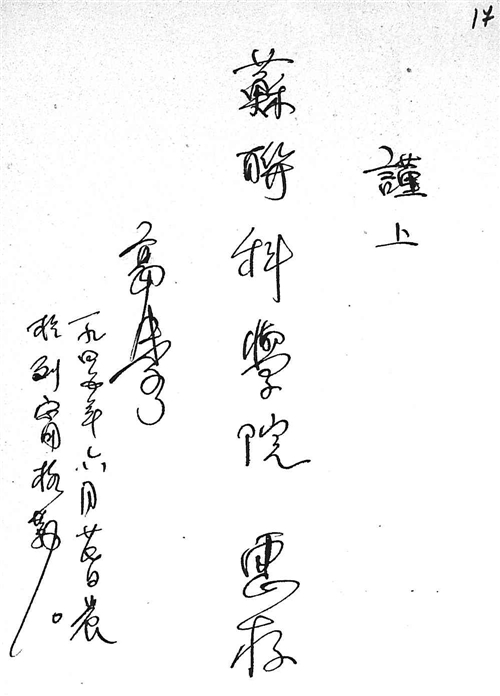 17
謹上
蘇聯科學院 惠存
一九四五年六月 日晨
於列寧格勒。